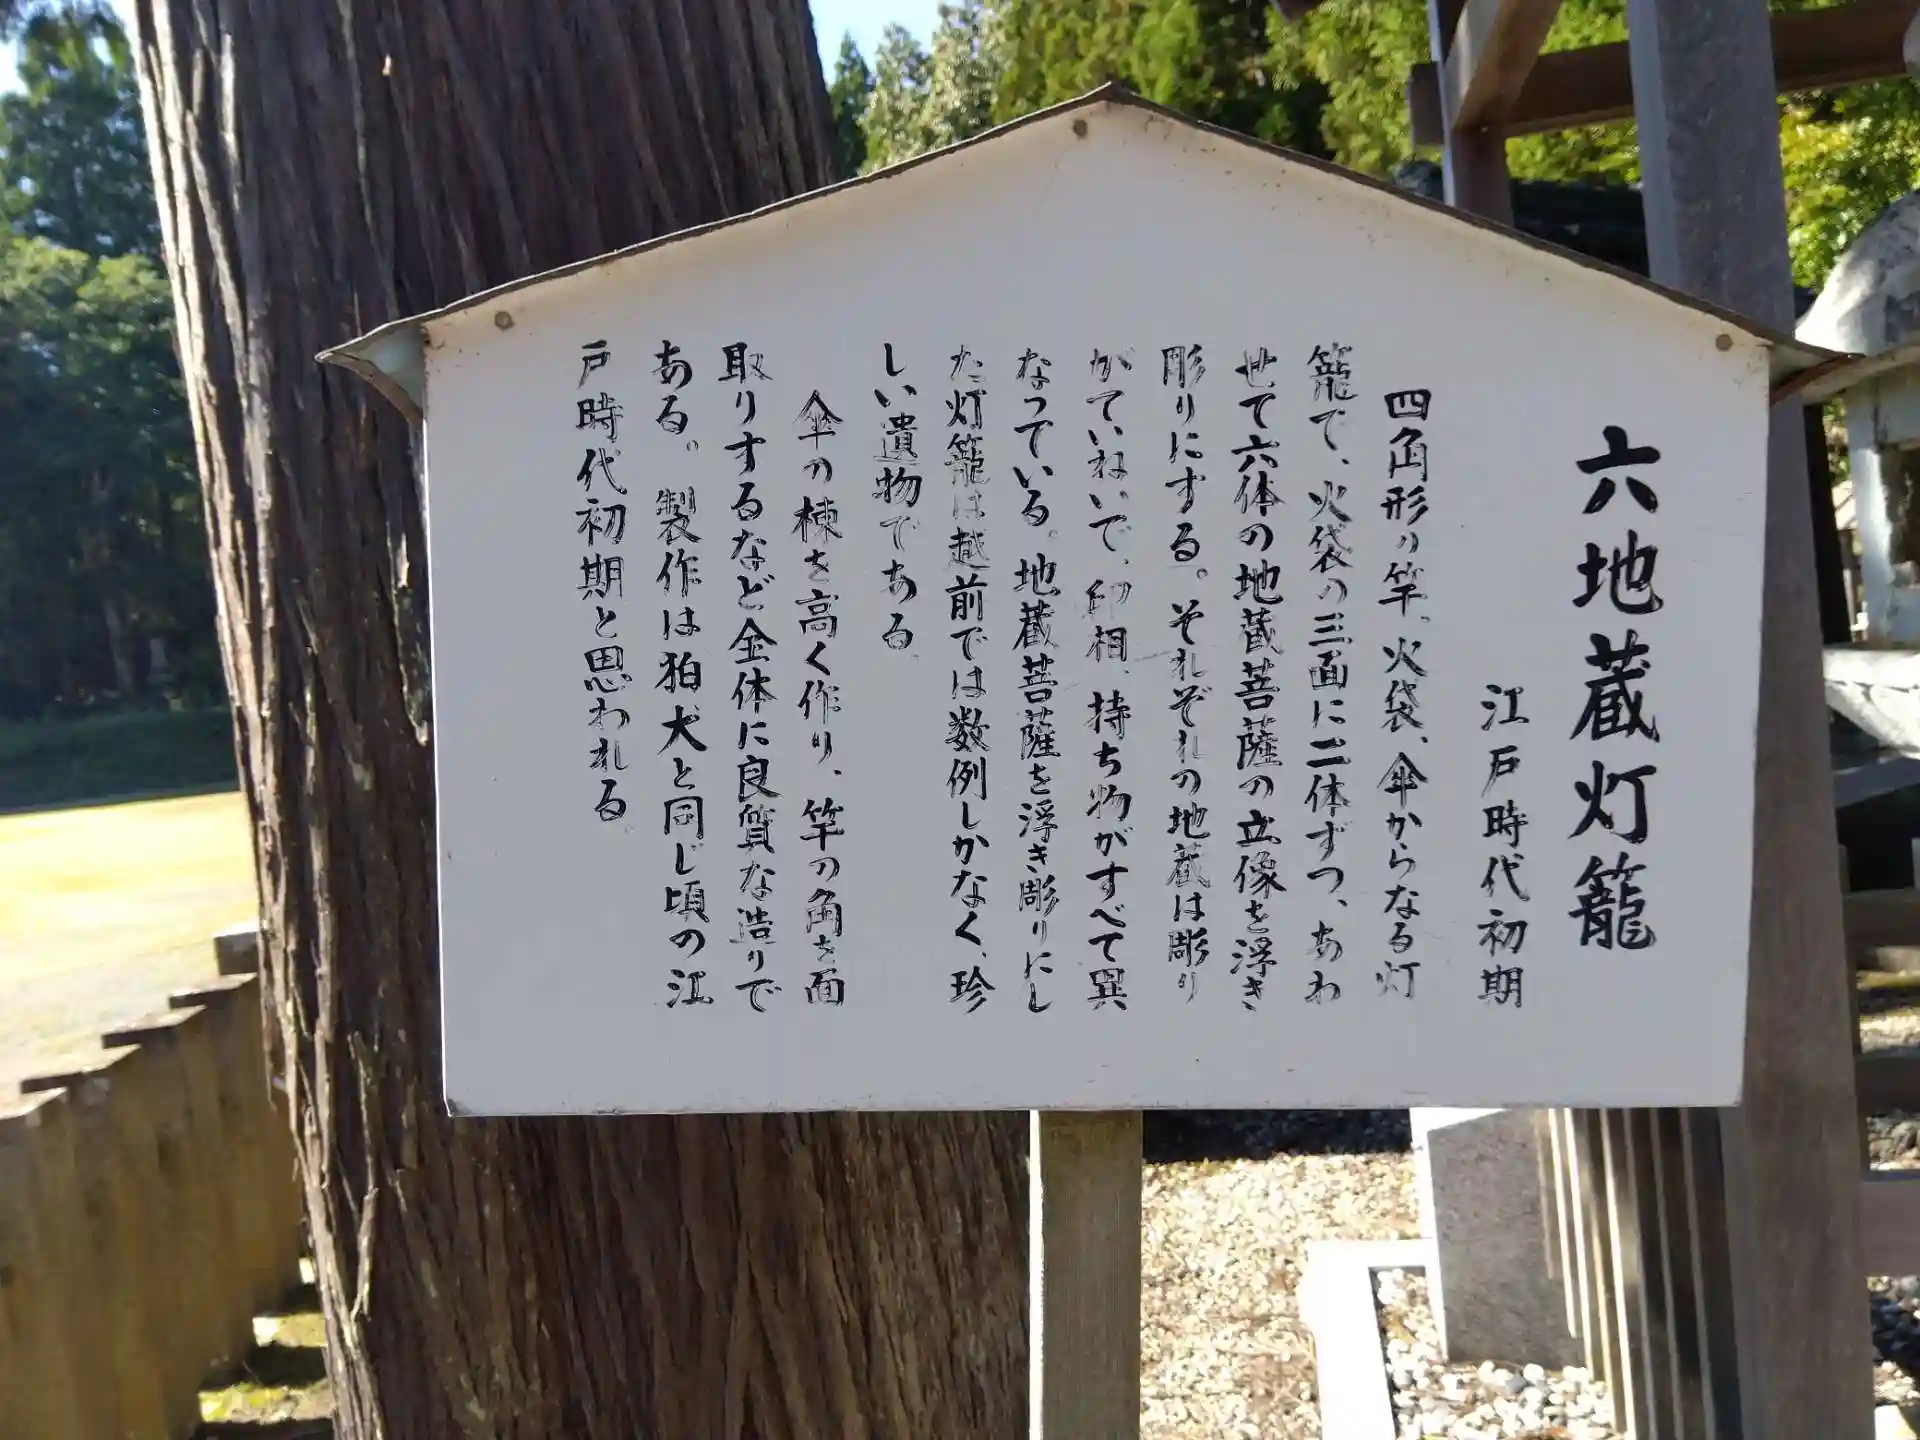 六地蔵灯籠
江戸時代初期
四角形の竿、火袋、傘からなる灯
籠で、火袋の三面に二体ずつ、あわ
せて六体の地蔵菩薩の立像を浮き
彫りにする。それぞれの地蔵は彫り
がていねいで、印相、持ち物がすべて異
なっている。地蔵菩薩を浮き彫りにし
た灯籠は越前では数例しかなく、珍
しい遺物である。
傘の棟を高く作り、竿の角を面
取りするなど全体に良質な造りで
ある。製作は狛犬と同じ頃の江
戸時代初期と思われる。